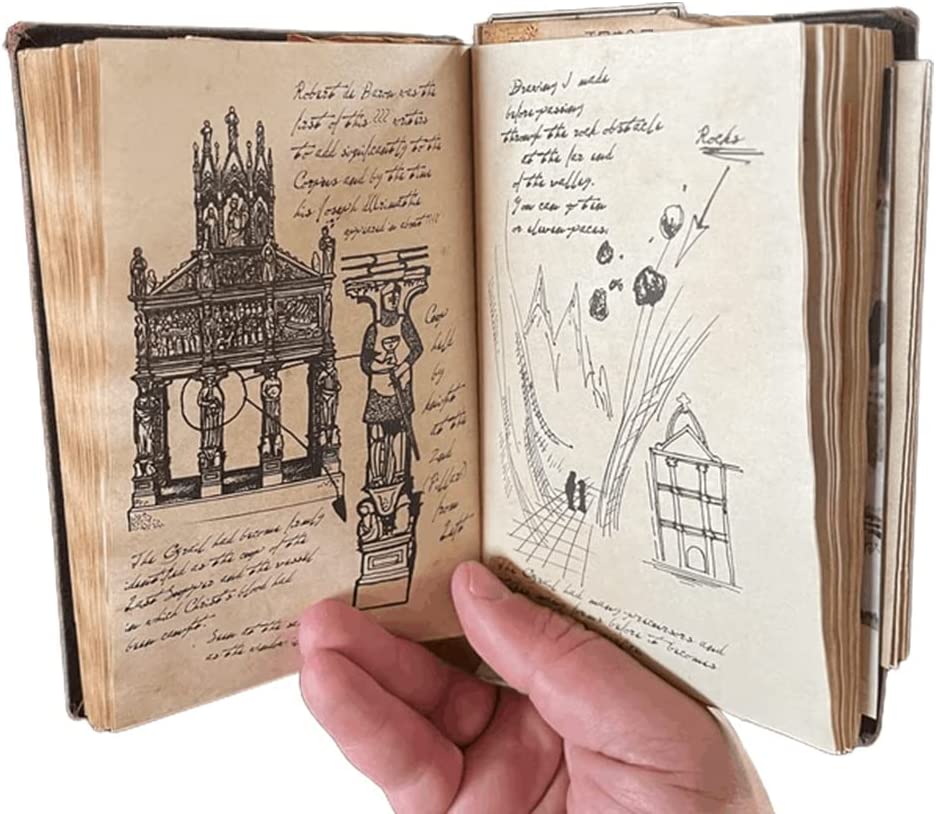 Robert de Baron was the
first of this ??? writers
to add significantly to the
Corpus and by the time
his Joseph
appeared in about ????
Cup
held
by
knight
at the
2nd
(Pillar)
from
Left
The Grail had become firmly
identified as the cup of the
Last Supper and the vessel
in which Christ's blood had
been caught.
Seen at the
as the number
Drawing I made
before passing
through the rock obstacle
at the far end
of the valley.
You can go ten
or eleven paces.
Rocks
The Grail had many precursors and
forms before it becomes